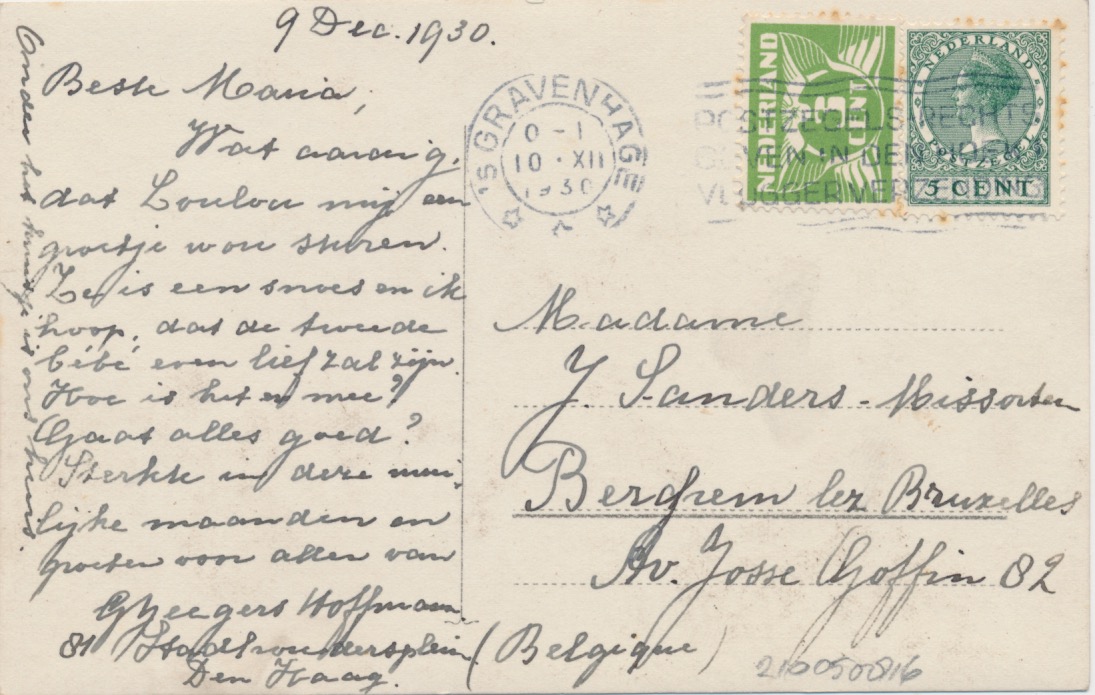 9 Dec. 1930.
Beste Maria,
Wat aardig,
dat Loulou mij een
groetje wou sturen.
Ze is een snoes en ik
hoop, dat de tweede
bébé even lief zal zijn.
Hoe is het er mee?
Gaat alles goed?
Sterkte in deze moei-
lijke maanden en
groeten voor allen van
Hoffmann
81 Stadhoudersplein
Den Haag.
Onder het kruisje is ons huis.
'S GRAVENHAGE
0 - 1
10 · XII
1930
POSTZEGELS RECHTS
BOVEN IN DEN HOEK
VLUGGER VERZENDING
NEDERLAND
3 CENT
NEDERLAND
POSTZEGEL
5 CENT
Madame
J. Sanders-Missorten
Berghem lez Bruxelles
Av. Josse Goffin 82
(Belgique)
210050816